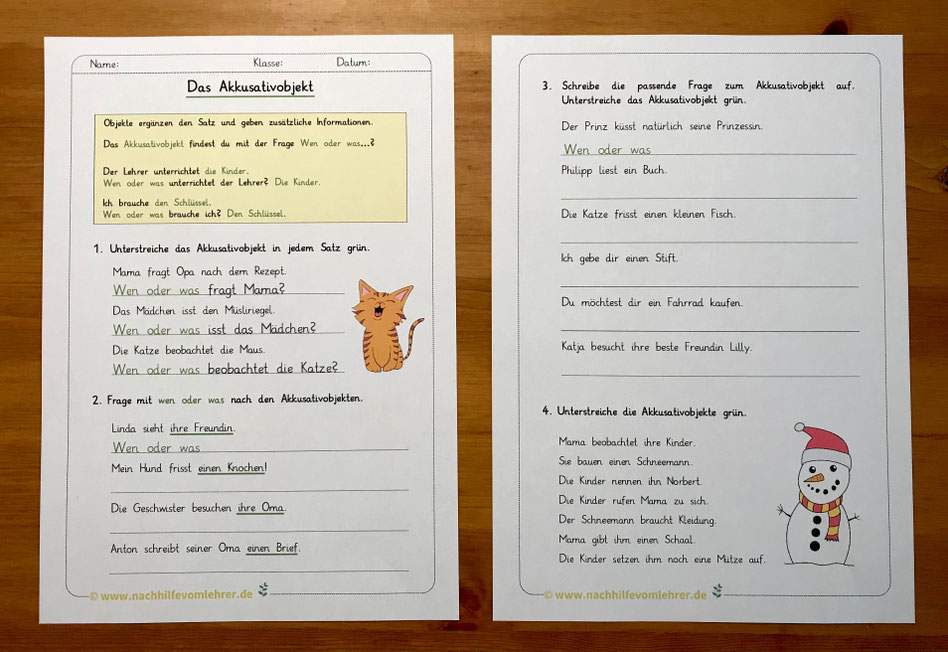 Name: Klasse: Datum:
Das Akkusativobjekt
Objekte ergänzen den Satz und geben zusätzliche Informationen.
Das Akkusativobjekt findest du mit der Frage Wen oder was...?
Der Lehrer unterrichtet die Kinder.
Wen oder was unterrichtet der Lehrer? Die Kinder.
Ich brauche den Schlüssel.
Wen oder was brauche ich? Den Schlüssel.
1. Unterstreiche das Akkusativobjekt in jedem Satz grün.
Mama fragt Opa nach dem Rezept.
Wen oder was fragt Mama?
Das Mädchen isst den Müsliriegel.
Wen oder was isst das Mädchen?
Die Katze beobachtet die Maus.
Wen oder was beobachtet die Katze?
2. Frage mit wen oder was nach den Akkusativobjekten.
Linda sieht ihre Freundin.
Wen oder was
Mein Hund frisst einen Knochen!
Die Geschwister besuchen ihre Oma.
Anton schreibt seiner Oma einen Brief.
© www.nachhilfevomlehrer.de
3. Schreibe die passende Frage zum Akkusativobjekt auf.
Unterstreiche das Akkusativobjekt grün.
Der Prinz küsst natürlich seine Prinzessin.
Wen oder was
Philipp liest ein Buch.
Die Katze frisst einen kleinen Fisch.
Ich gebe dir einen Stift.
Du möchtest dir ein Fahrrad kaufen.
Katja besucht ihre beste Freundin Lilly.
4. Unterstreiche die Akkusativobjekte grün.
Mama beobachtet ihre Kinder.
Sie bauen einen Schneemann.
Die Kinder nennen ihn Norbert.
Die Kinder rufen Mama zu sich.
Der Schneemann braucht Kleidung.
Mama gibt ihm einen Schaal.
Die Kinder setzen ihm noch eine Mütze auf.
© www.nachhilfevomlehrer.de